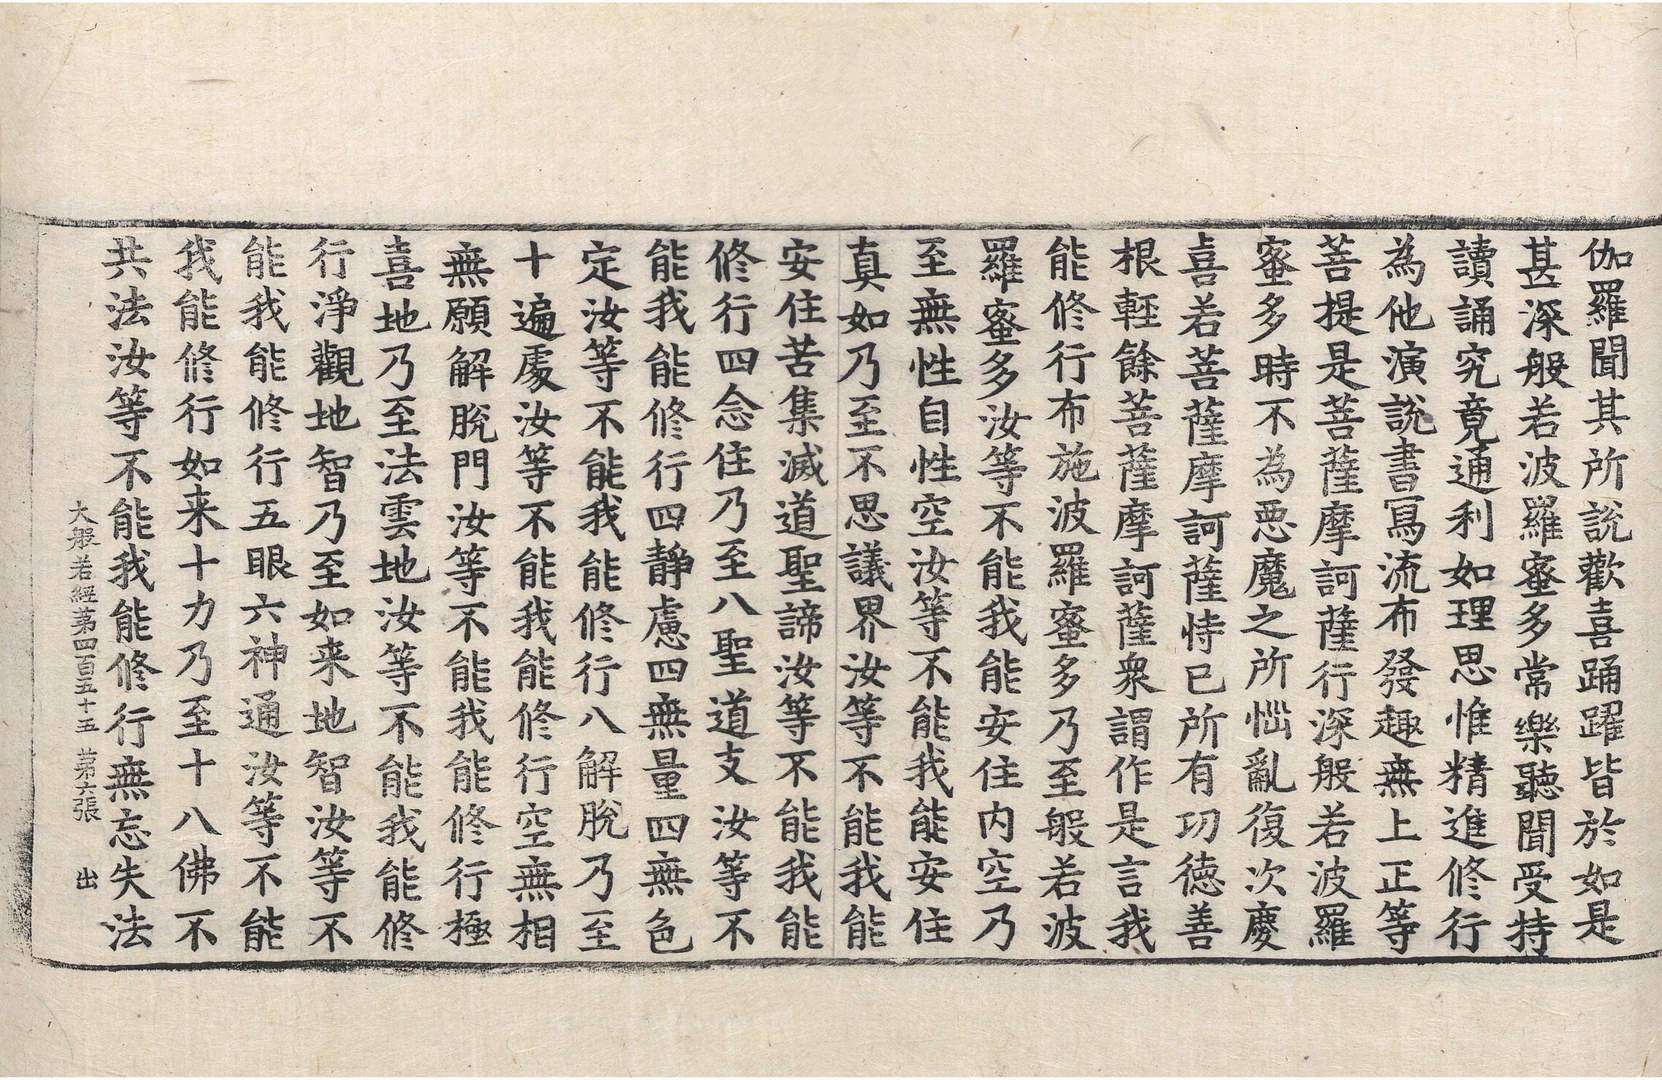 伽羅聞其所說歡喜踊躍皆於如是
甚深般若波羅蜜多常樂聽聞受持
讀誦究竟通利如理思惟精進修行
為他演說書寫流布發趣無上正等
菩提是菩薩摩訶薩行深般若波羅
蜜多時不為惡魔之所惱亂復次慶
喜若菩薩摩訶薩恃已所有功德善
根輕餘菩薩摩訶薩衆謂作是言我
能修行布施波羅蜜多乃至般若波
羅蜜多汝等不能我能安住內空乃
至無性自性空汝等不能我能安住
真如乃至不思議界汝等不能我能
安住苦集滅道聖諦汝等不能我能
修行四念住乃至八聖道支汝等不
能我能修行四靜慮四無量四無色
定汝等不能我能修行八解脫乃至
十遍處汝等不能我能修行空無相
無願解脫門汝等不能我能修行極
喜地乃至法雲地汝等不能我能修
行淨觀地智乃至如来地智汝等不
能我能修行五眼六神通汝等不能
我能修行如来十力乃至十八佛不
共法汝等不能我能修行無忘失法
大般若經第四百五十五　第六張　出